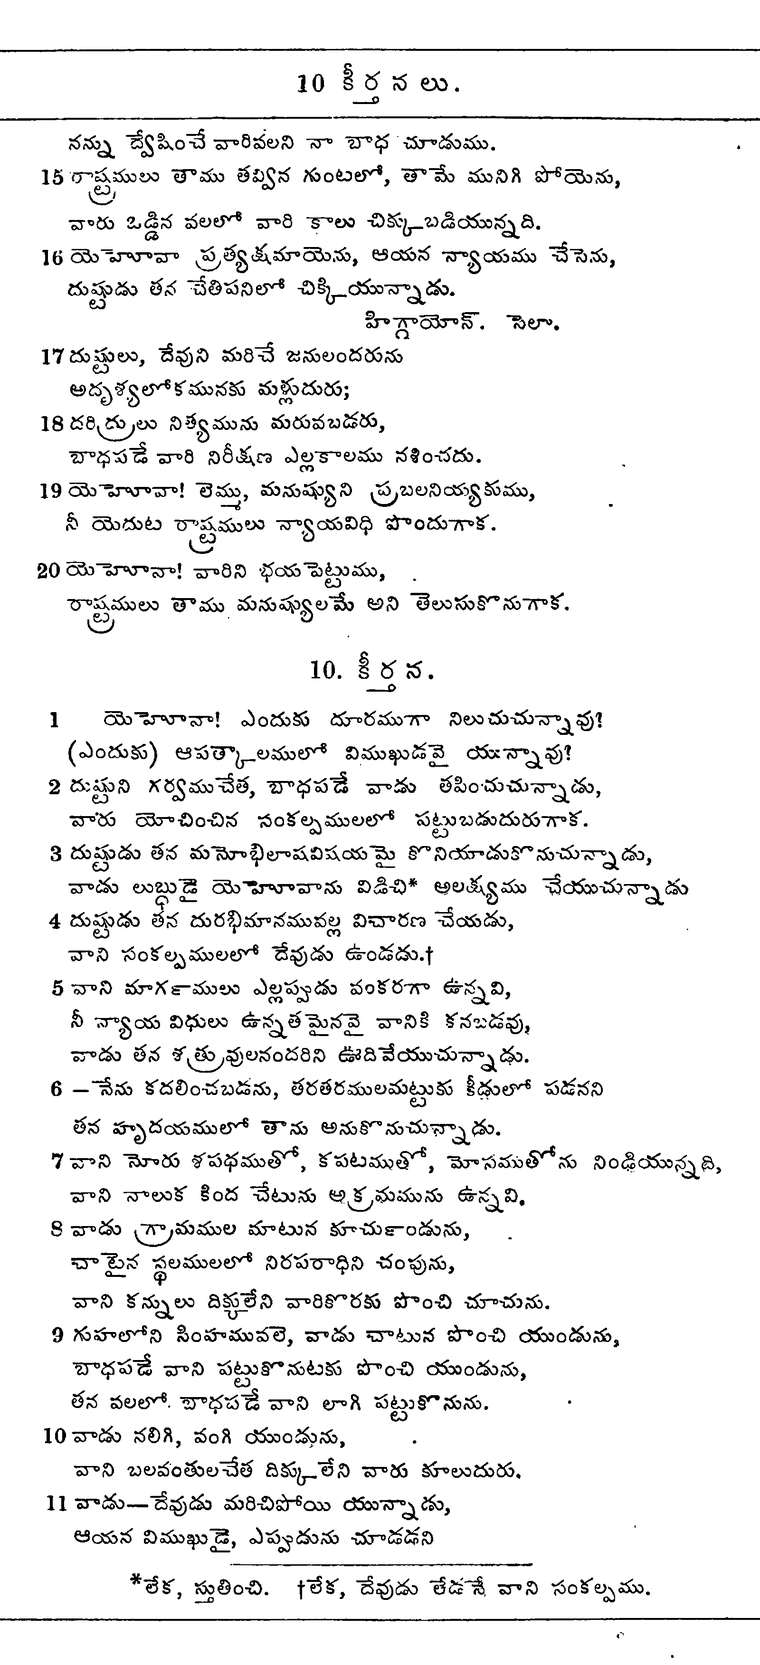 10 కీర్తనలు.
నన్ను ద్వేషించే వారివలని నా బాధ చూడుము.
15 రాష్ట్రములు తాము తవ్విన గుంటలో, తామే మునిగి పోయెను,
వారు ఒడ్డిన వలలో వారి కాలు చిక్కుబడియున్నది.
16 యెహోవా ప్రత్యక్షమాయెను, ఆయన న్యాయము చేసెను,
దుష్టుడు తన చేతిపనిలో చిక్కియున్నాడు.
హిగ్గాయోన్. సెలా.
17 దుష్టులు, దేవుని మరిచే జనులందరును
అదృశ్యలోకమునకు మళ్లుదురు;
18 దరిద్రులు నిత్యమును మరువబడరు,
బాధపడే వారి నిరీక్షణ ఎల్లకాలము నశించదు.
19 యెహోవా! లెమ్ము, మనుష్యుని ప్రబలనియ్యకుము,
నీ యెదుట రాష్ట్రములు న్యాయవిధి పొందుగాక.
20 యెహోవా! వారిని భయపెట్టుము,
రాష్ట్రములు తాము మనుష్యులమే అని తెలుసుకొనుగాక.
10. కీర్తన.
1 యెహోవా! ఎందుకు దూరముగా నిలుచుచున్నావు?
(ఎందుకు) ఆపత్కాలములో విముఖుడవై యున్నావు?
2 దుష్టుని గర్వముచేత, బాధపడే వాడు తపించుచున్నాడు,
వారు యోచించిన సంకల్పములలో పట్టుబడుదురుగాక.
3 దుష్టుడు తన మనోభిలాషవిషయమై కొనియాడుకొనుచున్నాడు,
వాడు లుబ్ధుడై యెహోవాను విడిచి* అలక్ష్యము చేయుచున్నాడు
4 దుష్టుడు తన దురభిమానమువల్ల విచారణ చేయడు,
వాని సంకల్పములలో దేవుడు ఉండడు.†
5 వాని మార్గములు ఎల్లప్పుడు వంకరగా ఉన్నవి,
నీ న్యాయ విధులు ఉన్నతమైనవై వానికి కనబడవు,
వాడు తన శత్రువులనందరిని ఊదివేయుచున్నాడు.
6 — నేను కదలించబడను, తరతరములమట్టుకు కీడులో పడనని
తన హృదయములో తాను అనుకొనుచున్నాడు.
7 వాని నోరు శపథముతో, కపటముతో, మోసముతోను నిండియున్నది,
వాని నాలుక కింద చేటును అక్రమమును ఉన్నవి.
8 వాడు గ్రామముల మాటున కూర్చుండును,
చాటైన స్థలములలో నిరపరాధిని చంపును,
వాని కన్నులు దిక్కులేని వారికొరకు పొంచి చూచును.
9 గుహలోని సింహమువలె, వాడు చాటున పొంచి యుండును,
బాధపడే వాని పట్టుకొనుటకు పొంచి యుండును,
తన వలలో బాధపడే వాని లాగి పట్టుకొనును.
10 వాడు నలిగి, వంగి యుండును,
వాని బలవంతులచేత దిక్కులేని వారు కూలుదురు.
11 వాడు—దేవుడు మరిచిపోయి యున్నాడు,
ఆయన విముఖుడై, ఎప్పుడును చూడడని
*లేక, స్తుతించి. †లేక, దేవుడు లేడనే వాని సంకల్పము.